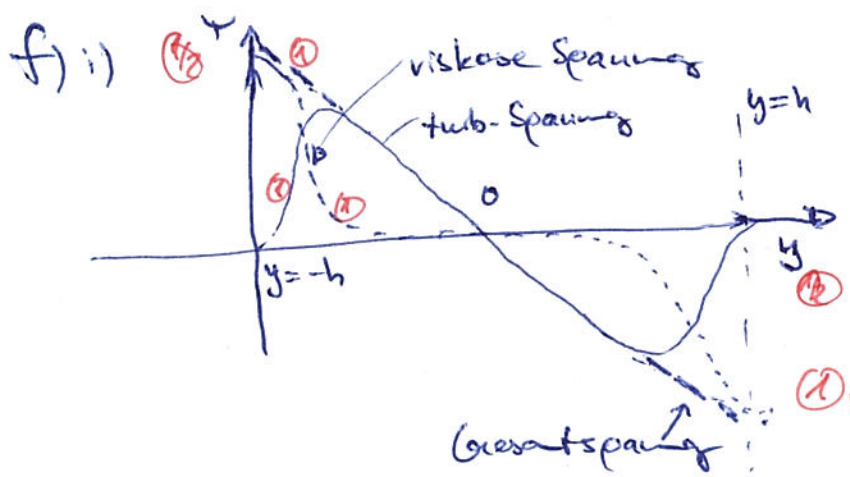 f) i)
τ
1
viskose Spannung
y=h
turb. Spannung
1
0
y=-h
y
1
Gesamtspannung